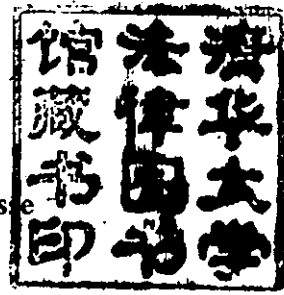 清华大学
法律图书
馆藏书印